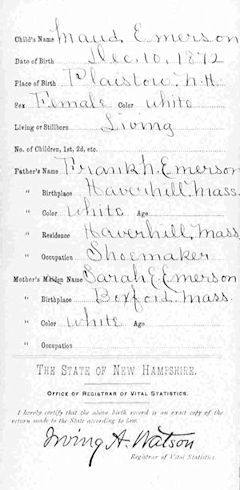 Child's Name Maud Emerson
Date of Birth Dec. 10, 1872
Place of Birth Plaistow, N.H.
Sex Female Color White
Living or Stillborn Living
No. of Children, 1st, 2d, etc.
Father's Name Frank N. Emerson
" Birthplace Haverhill, Mass.
" Color White Age
" Residence Haverhill, Mass
" Occupation Shoemaker
Mother's Maiden Name Sarah E. Emerson
" Birthplace Boxford, Mass.
" Color White Age
" Occupation
THE STATE OF NEW HAMPSHIRE.
OFFICE OF REGISTRAR OF VITAL STATISTICS.
I hereby certify that the above birth record is an exact copy of the
return made to the State according to law.
Irving A. Watson
Registrar of Vital Statistics.